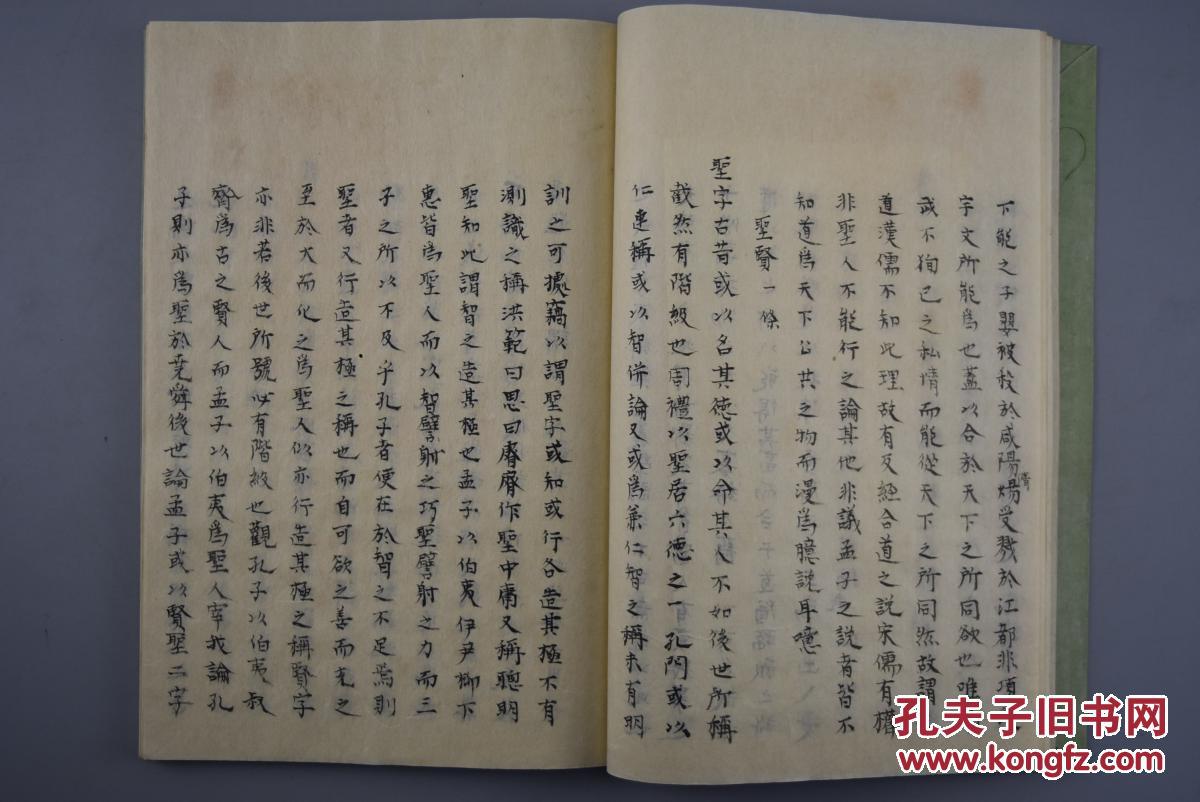 下能之子嬰被殺於咸陽煬受戮於江都非項
帝
字文所能爲也蓋以合於天下之所同欲也唯
武不狥己之私情而能從天下之所同然故謂
道漢儒不知此理故有反經合道之説宋儒有權
非聖人不能行之論其他非議孟子之説者皆不
知道爲天下公共之物而漫爲臆説耳噫
聖賢一條
聖字古昔或以名其德或以命其人不如後世所稱
截然有階級也周禮以聖居六德之一孔門或以
仁連稱或以智併論又或爲兼仁智之稱未有明
訓之可據竊以謂聖字或知或行各造其極不有
測識之稱洪範曰思曰睿睿作聖中庸又稱聰明
聖知此謂智之造其極也孟子以伯夷伊尹柳下
惠皆爲聖人而以智譬射之巧聖譬射之力而三
子之所以不及乎孔子者便在於智之不足焉則
聖者又行造其極之稱也而自可欲之善而充之
至於大而化之爲聖人似亦行造其極之稱賢字
亦非若後世所號必有階級也觀孔子以伯夷叔
齊爲古之賢人而孟子以伯夷爲聖人宰我論孔
子則亦爲聖於堯舜後世論孟子或以賢聖二字
孔夫子旧书网
www.kongfz.com